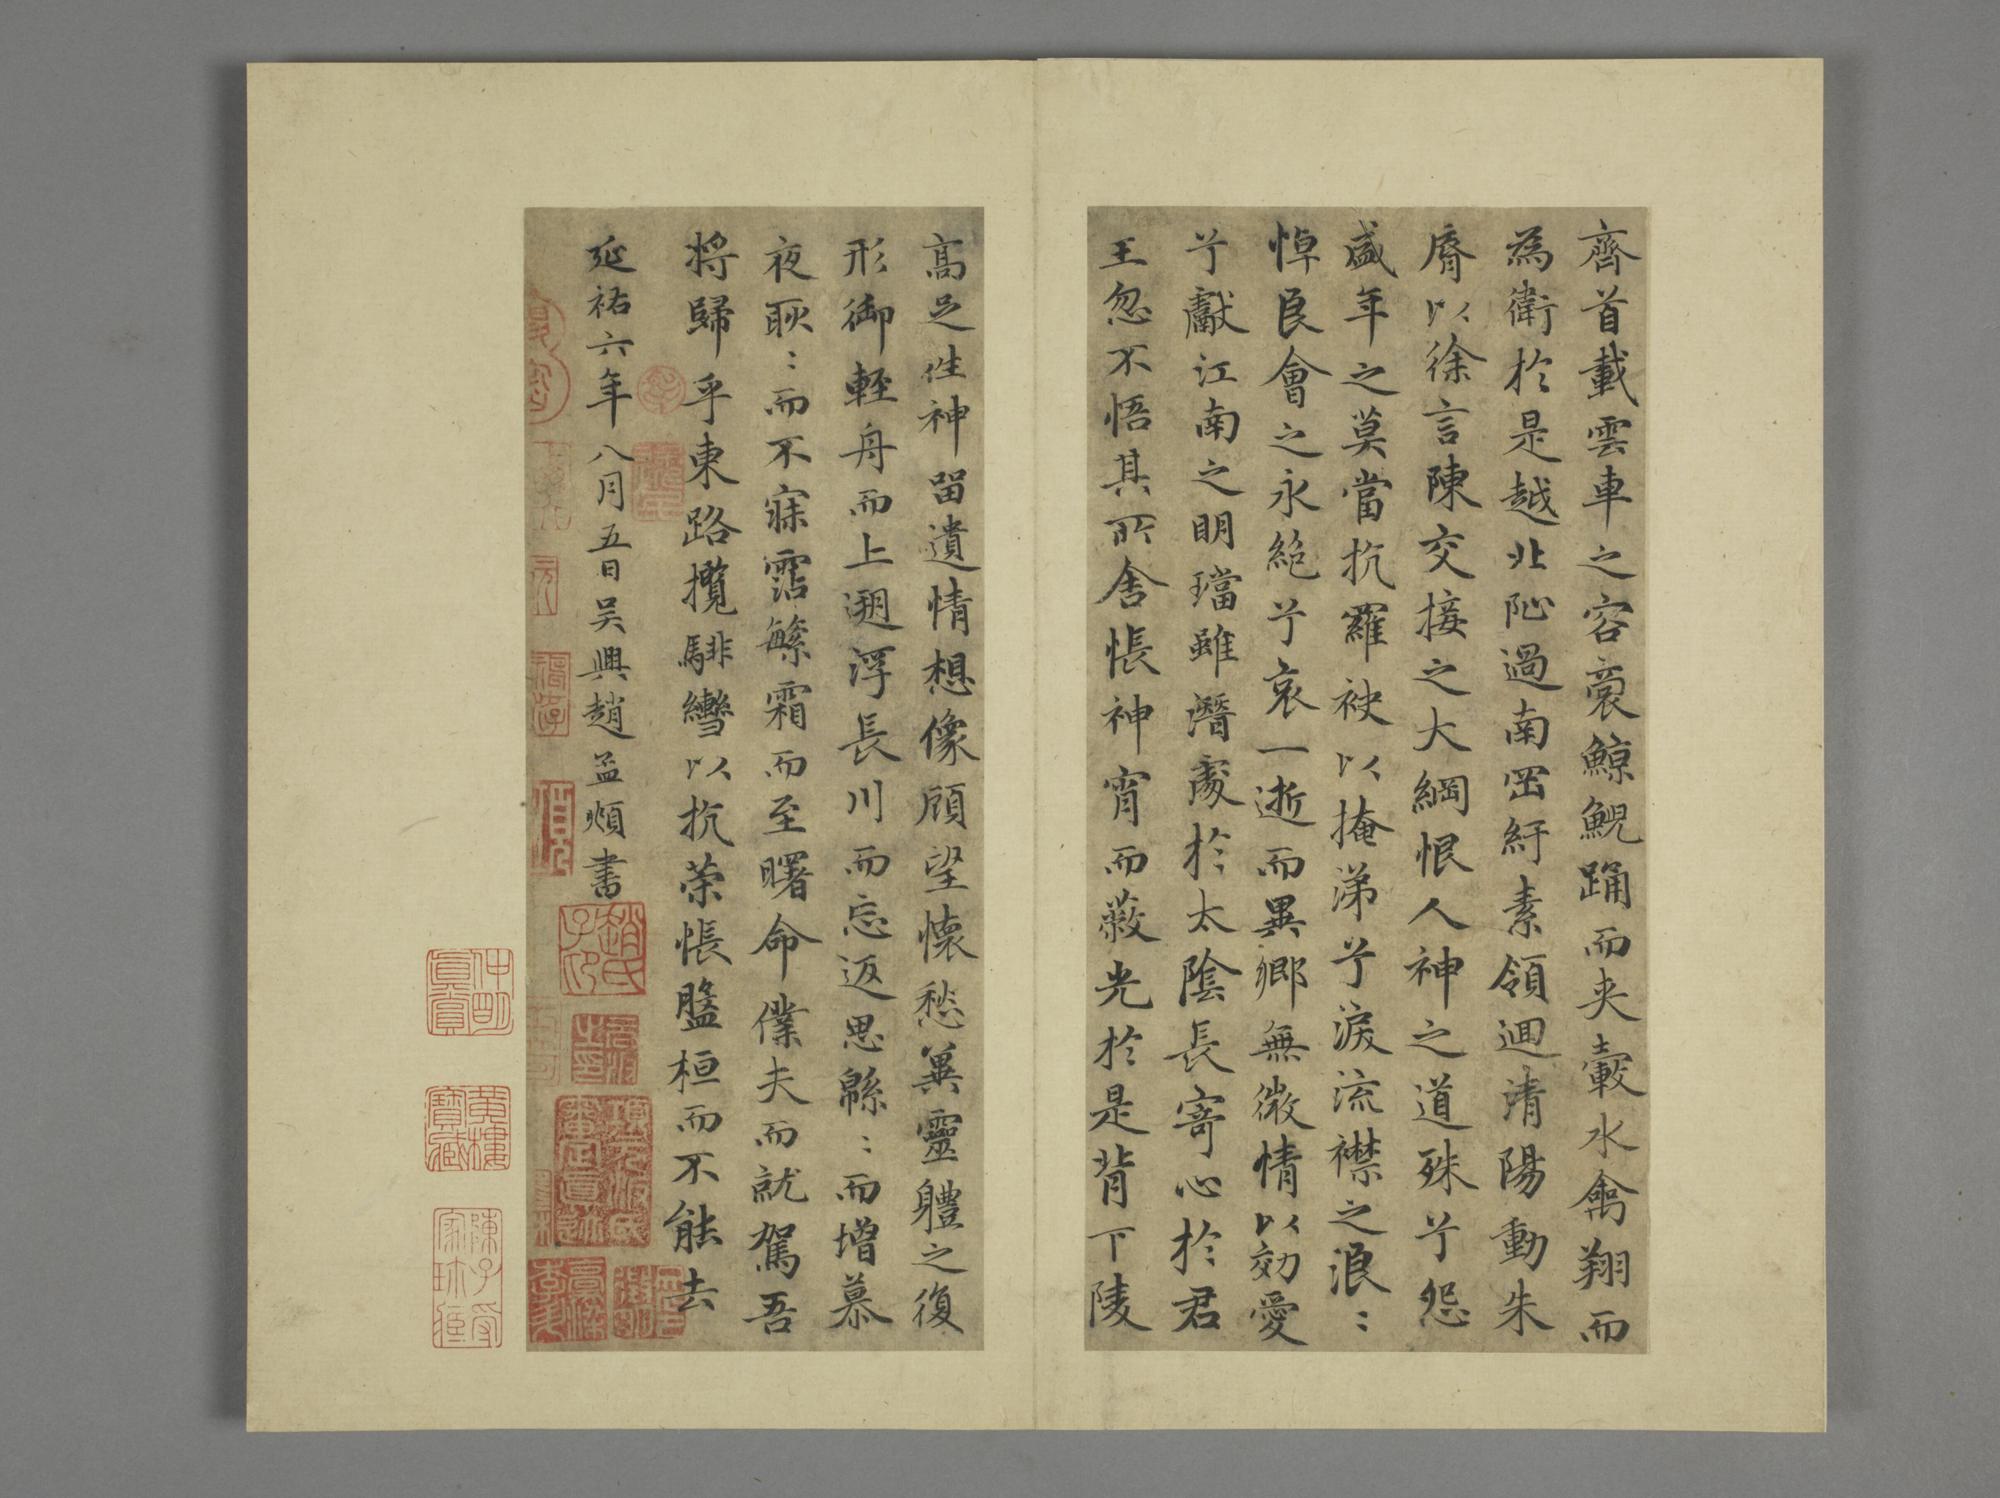 齊首載雲車之容裔鯨鯢踊而夾轂水禽翔而
為衛於是越北沚過南岡紆素領迴清陽動朱
脣以徐言陳交接之大綱恨人神之道殊兮怨
盛年之莫當抗羅袂以掩涕兮淚流襟之浪〻
悼良會之永絕兮哀一逝而異鄉無微情以効愛
兮獻江南之明璫雖潛處於太陰長寄心於君
王忽不悟其所舍悵神宵而蔽光於是背下陵
高足往神留遺情想像顧望懷愁冀靈體之復
形御輕舟而上遡浮長川而忘返思緜〻而增慕
夜耿〻而不寐霑繁霜而至曙命僕夫而就駕吾
將歸乎東路攬騑轡以抗策悵盤桓而不能去
延祐六年八月五日吳興趙孟頫書
趙氏子昂
項元汴氏審定真跡
黃樓寶藏
陳子受家珍藏